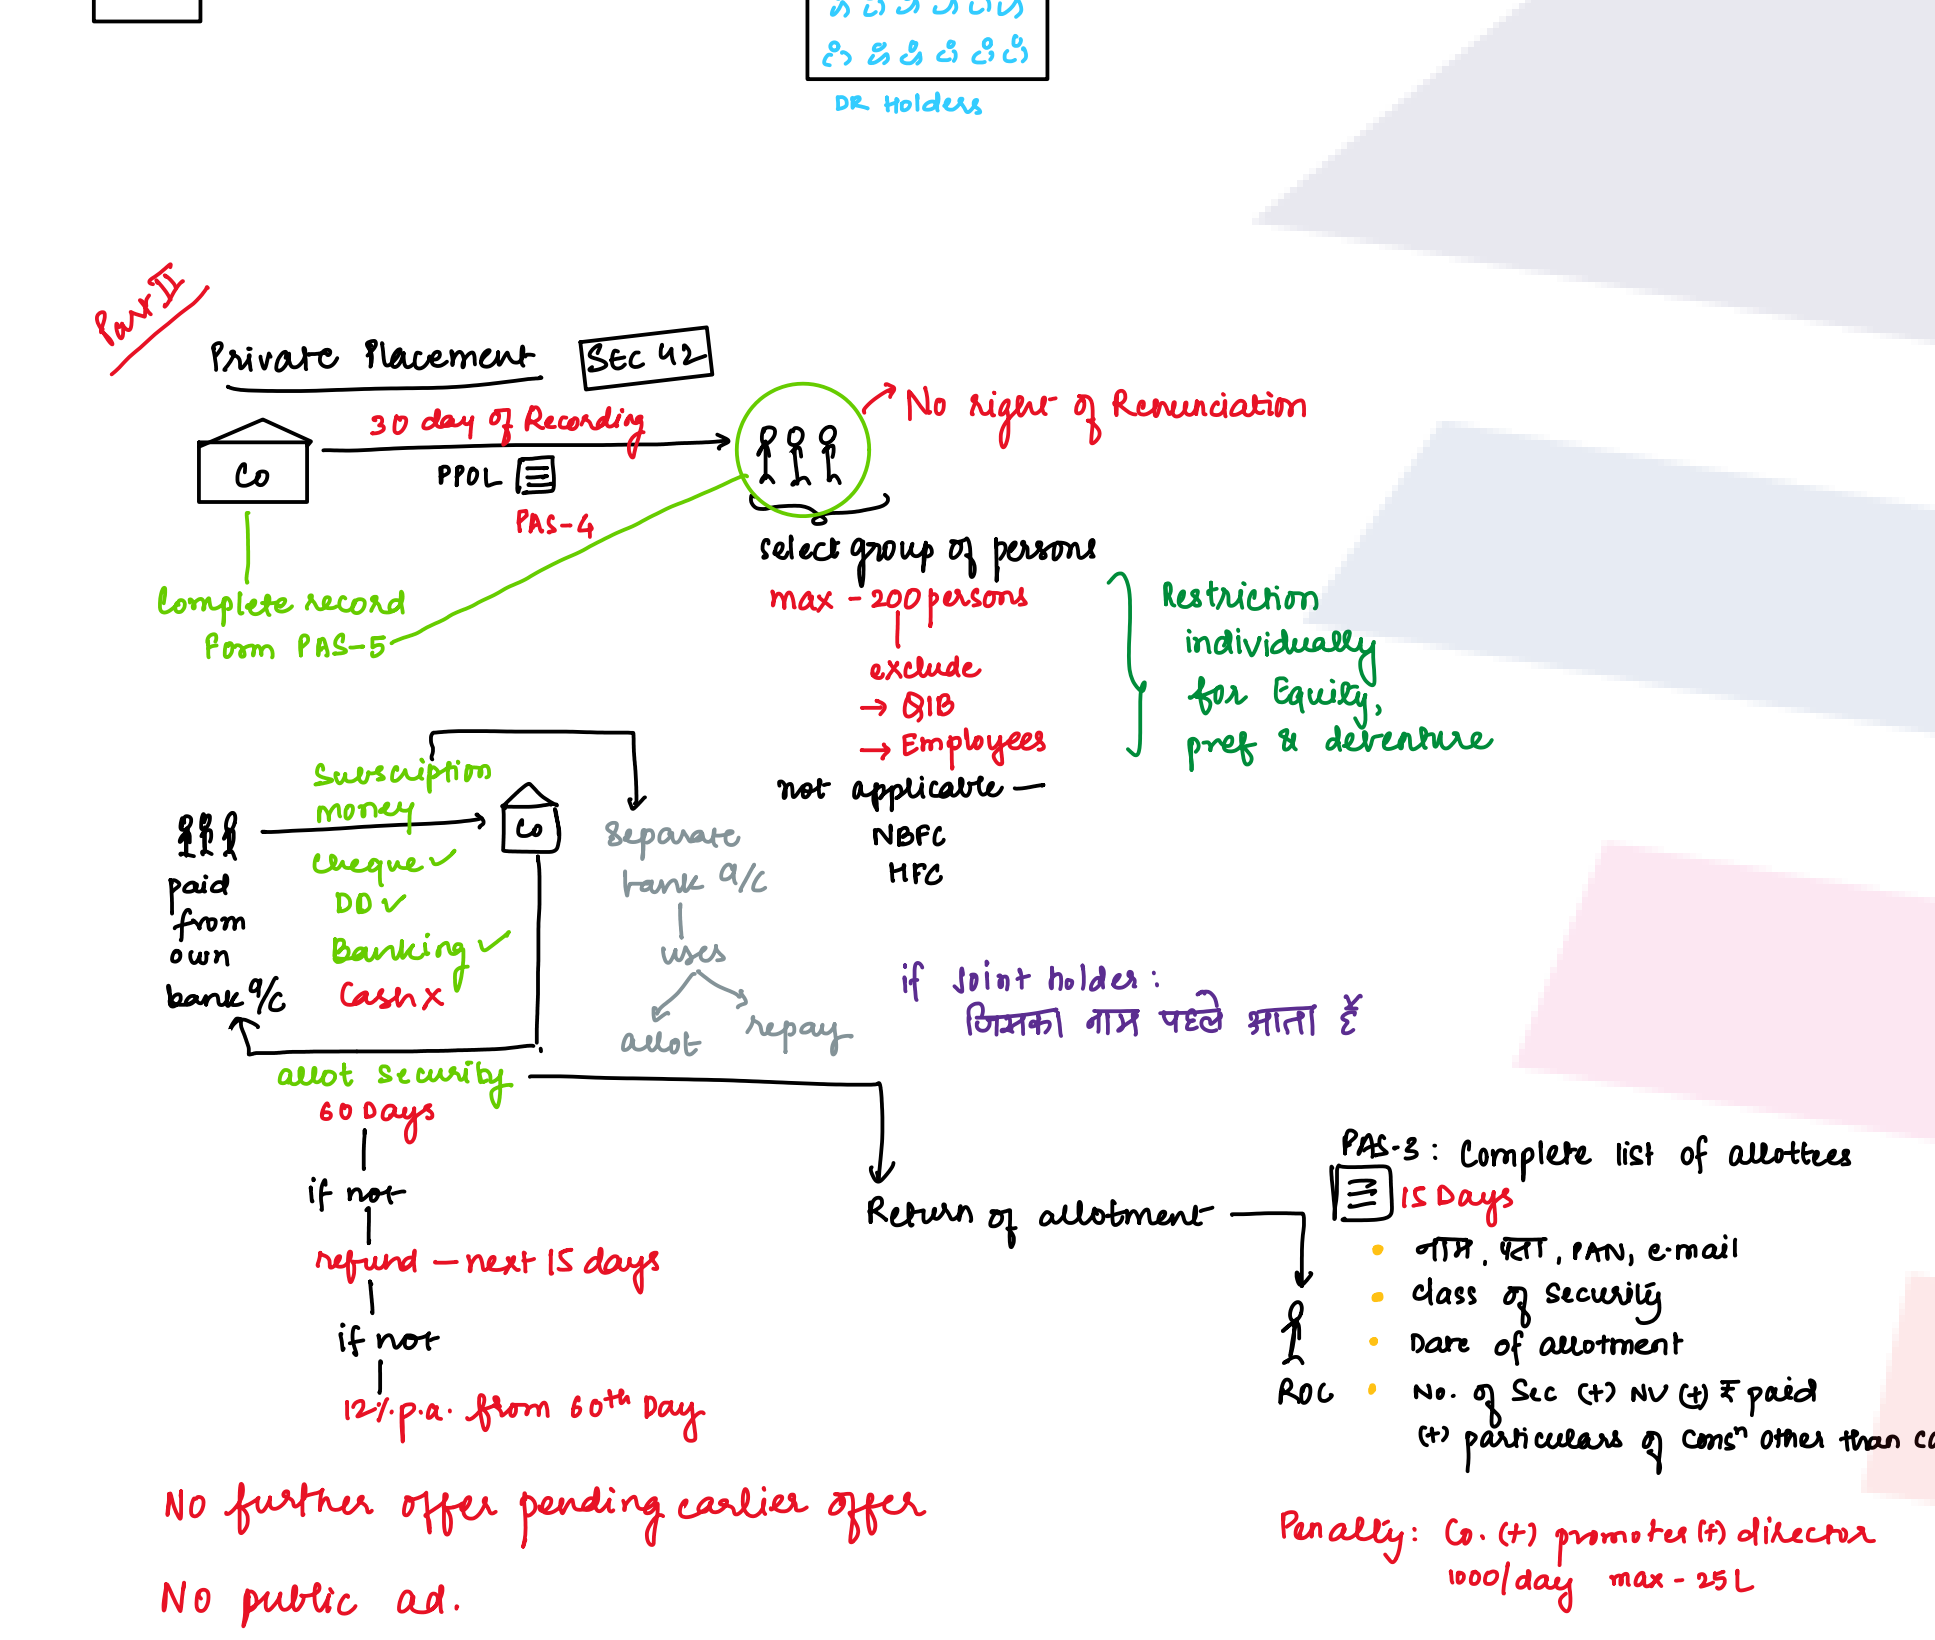 DR Holders
Part II
Private Placement
SEC 42
30 day of Recording
No right of Renunciation
Co
PPOL
PAS-4
select group of persons
max - 200 persons
Complete record
Form PAS-5
exclude
→ QIB
→ Employees
Restriction
individually
for Equity,
pref & debenture
not applicable —
NBFC
HFC
Subscription
money
Co
Cheque ✓
DD ✓
Banking ✓
Cash x
paid
from
own
bank a/c
Separate
bank a/c
uses
allot
repay
if Joint holder :
जिसका नाम पहले आता है
allot security
60 Days
if not
refund — next 15 days
if not
12% p.a. from 60th Day
Return of allotment
PAS-3 : Complete list of allottees
15 Days
ROC
• नाम, पता, PAN, e-mail
• class of security
• Date of allotment
• No. of Sec (+) NV (+) ₹ paid
(+) particulars of Consn other than
No further offer pending earlier offer
No public ad.
Penalty : Co. (+) promoter (+) director
1000/day max - 25 L